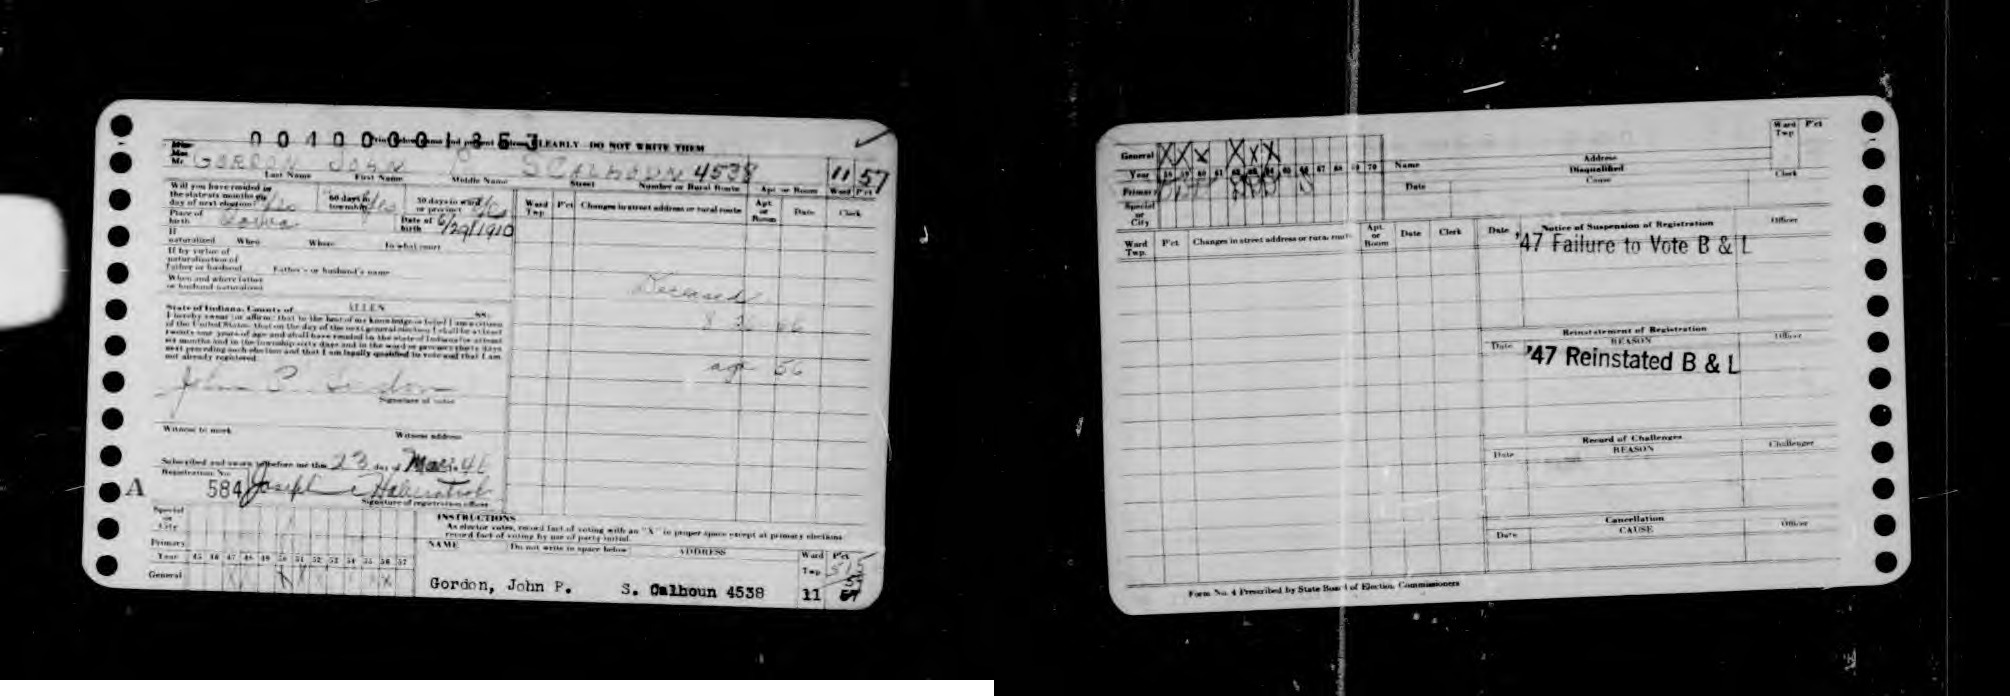 00400001357 CLEARLY DO NOT WRITE THEM
Mrs.
Miss
Mr. GORDON JOHN P S CALHOUN 4538 11 57
Last Name First Name Middle Name Street Number or Rural Route Apt or Room Ward Pct
Will you have resided in
the state six months on
day of next election? Yes
60 days in
township Yes
30 days in ward
or precinct Yes
Place of
birth
Date of
birth 6/29/1910
If
naturalized When Where In what court
If by virtue of
naturalization of
father or husband Father's or husband's name
When and where father
or husband naturalized
State of Indiana, County of ALLEN SS:
I hereby swear (or affirm) that to the best of my knowledge or belief I am a citizen
of the United States, that on the day of the next general election I shall be at least
twenty-one years of age and shall have resided in the state of Indiana for at least
six months and in the township sixty days and in the ward or precinct thirty days
next preceding such election and that I am legally qualified to vote and that I am
not already registered.
John P. Gordon
Signature of voter
Witness to mark Witness address
Subscribed and sworn to before me this 23 day of Mar. 41
Registration No.
A 584 Joseph
Signature of registration officer
Ward
Twp P'ct Changes in street address or rural route Apt.
or
Room Date Clerk
Deceased
66
age 56
Special
or
City
Primary
Year 45 46 47 48 49 50 51 52 53 54 55 56 57
General X X X X
INSTRUCTIONS
As elector votes, record fact of voting with an "X" in proper space except at primary elections
record fact of voting by use of party initial.
NAME Do not write in space below ADDRESS Ward
Twp P'ct
515
57
Gordon, John P. S. Calhoun 4538 11 57
General X X X X X X
Year 58 59 60 61 62 63 64 65 66 67 68 69 70
Primary
Special
or
City
Name Address
Ward
Twp P'ct
Disqualified
Date Cause Clerk
Ward
Twp. P'ct Changes in street address or rural route Apt.
or
Room Date Clerk
Date Notice of Suspension of Registration Officer
'47 Failure to Vote B & L
Reinstatement of Registration
Date REASON Officer
'47 Reinstated B & L
Record of Challenges
Date REASON Challenger
Cancellation
Date CAUSE Officer
Form No. 4 Prescribed by State Board of Election Commissioners